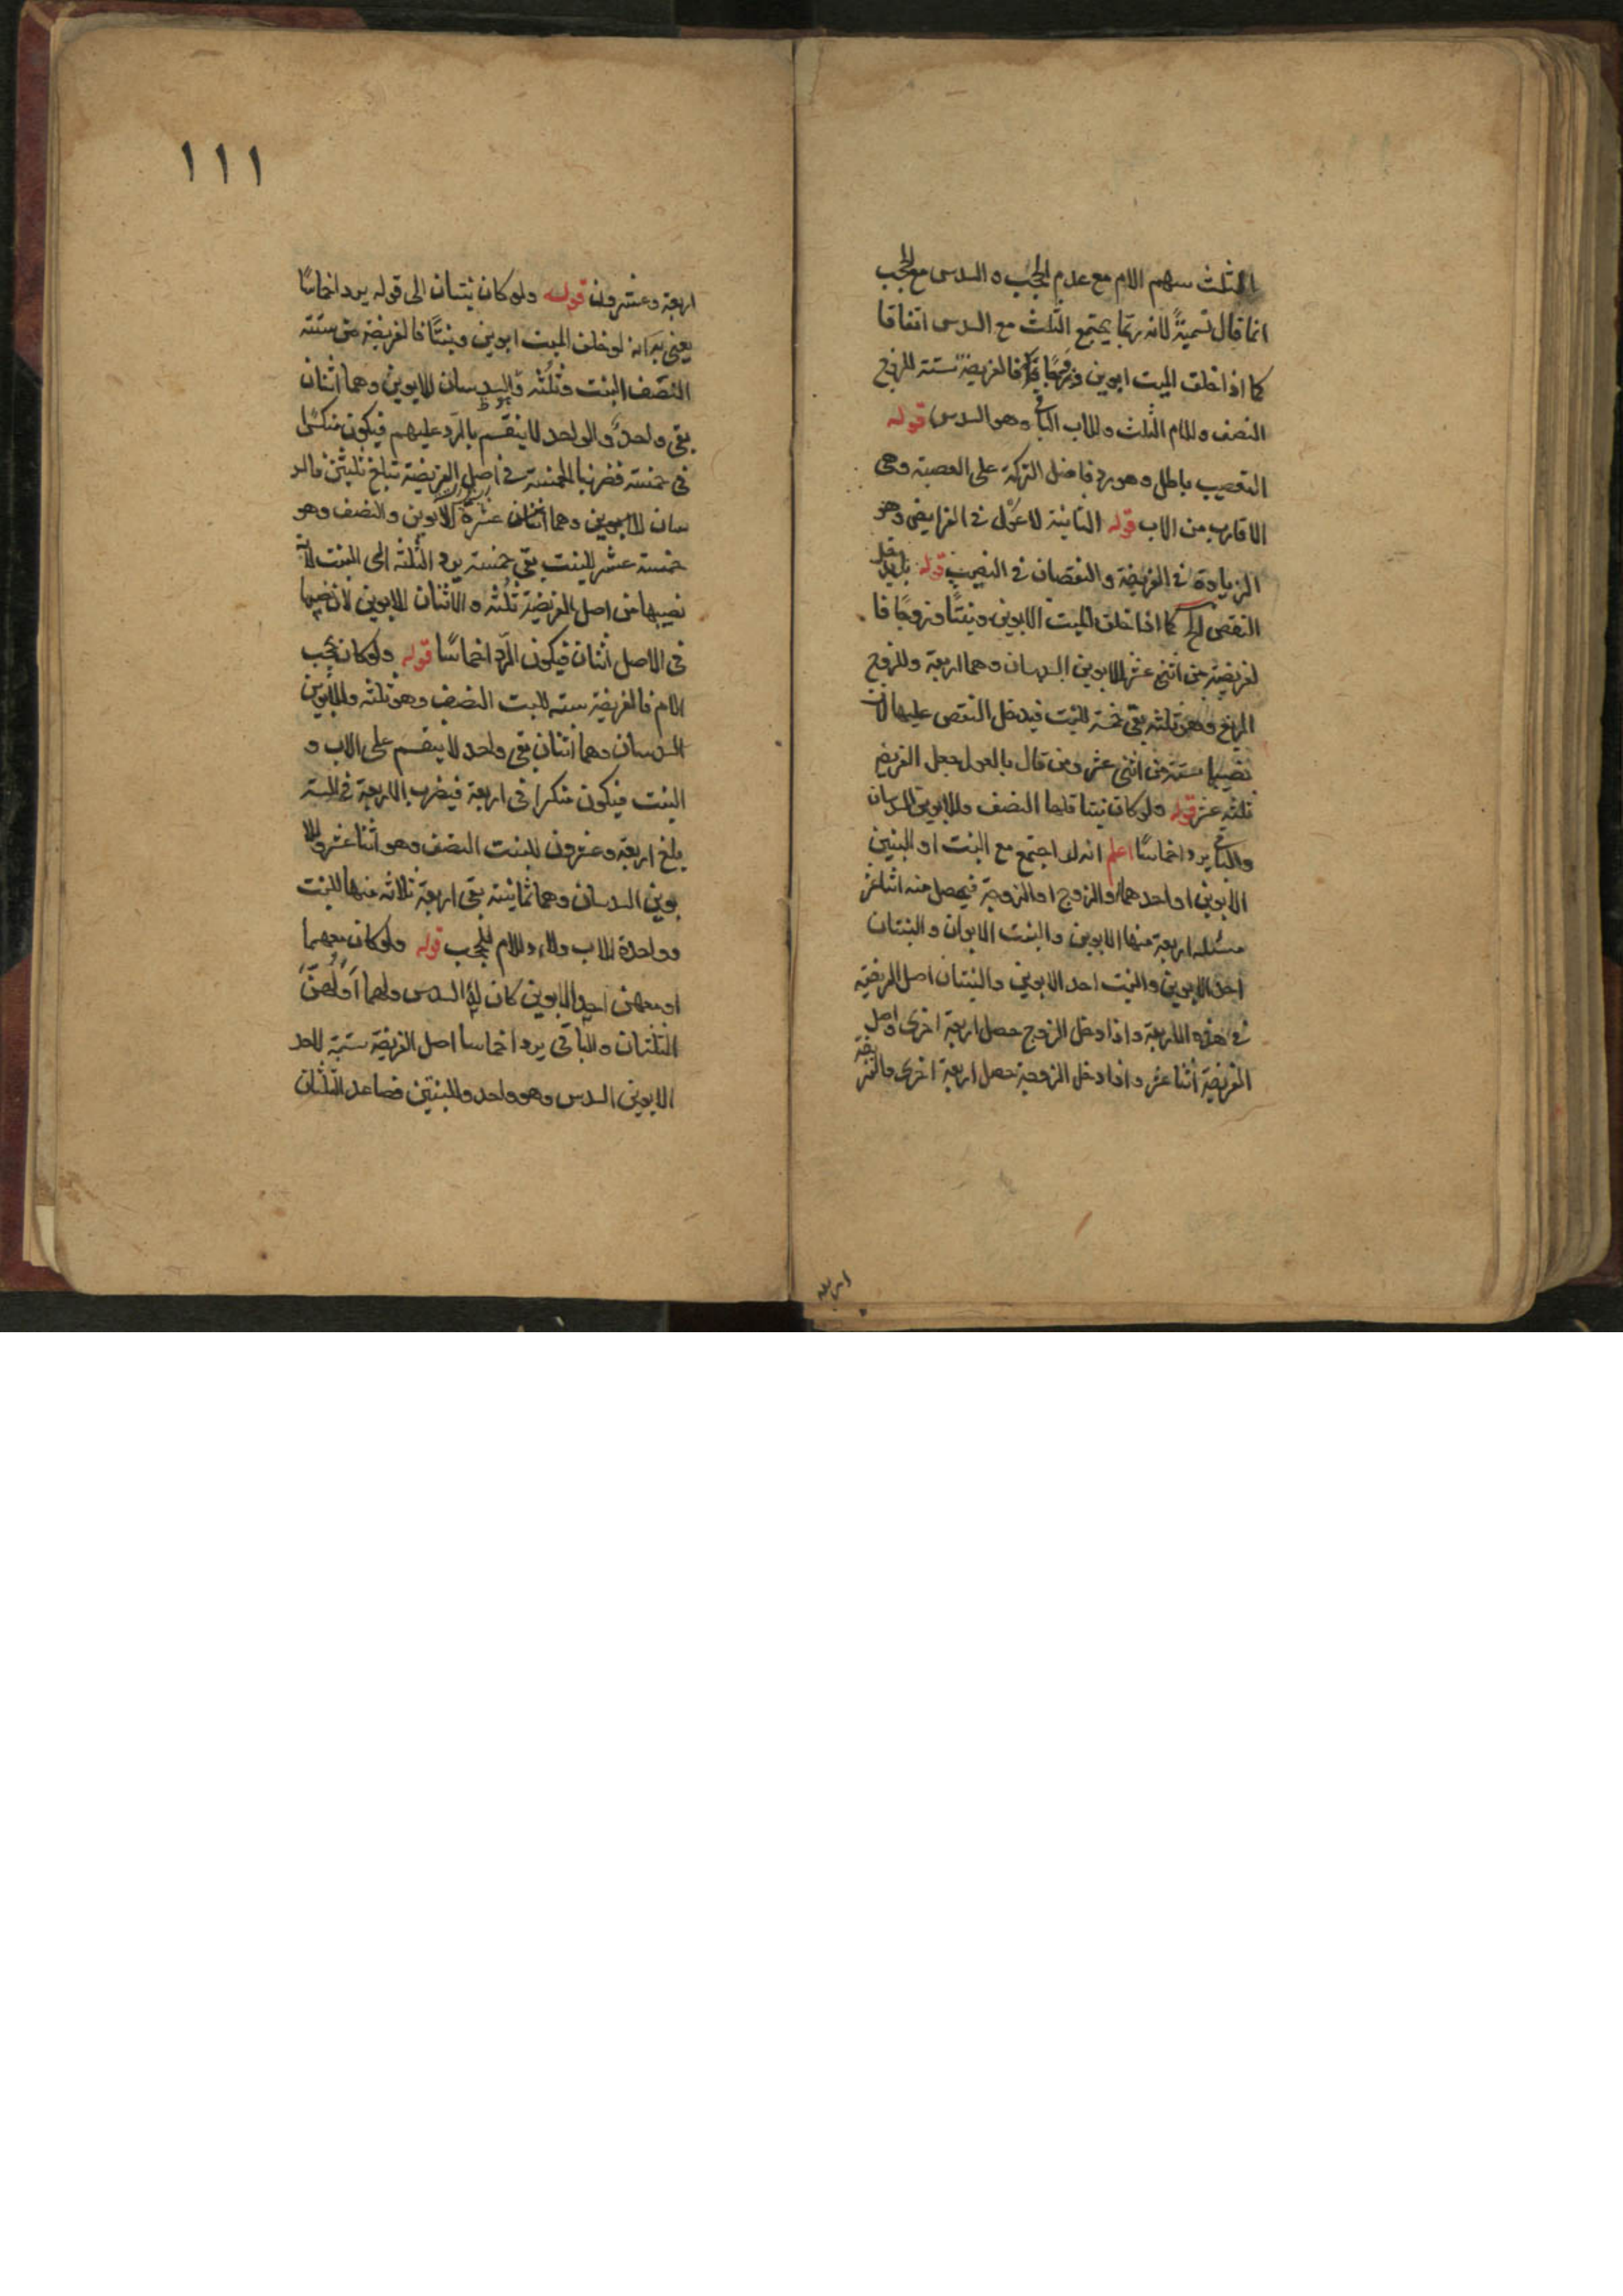 الثلث سهم الام مع عدم الحجب والسدس مع الحجب
انما قال تسميةً لانه ربما يجتمع الثلث مع السدس اتفاقا
كما اذا خلف الميت ابوين وزوجًا فالفريضة ستة للزوج
النصف وللام الثلث وللاب الباقي وهو السدس قوله
التعصيب باطل وهو رد فاضل التركة على العصبة وهى
الاقارب من الاب قوله الثانية لا عول فى الفرايض وهو
الزيادة فى الفريضة والنقصان فى النصيب قوله بل يدخل
النقص كما اذا خلف الميت الابوين وبنتًا وزوجًا فا
لفريضة من اثنى عشر للابوين السدسان وهما اربعة وللزوج
الربع وهو ثلثه بقى خمسة للبنت فيدخل النقص عليها لان
نصيبها ستة من اثنى عشر ومن قال بالعول جعل الفريضه
ثلثه عشر قوله ولو كان بنتا فلها النصف وللابوين السدسان
والباقي يرد اخماسًا اعلم انه لو اجتمع مع البنت او البنتين
الابوين او احدهما والزوج او الزوجة فيحصل منه اثنا عشر
مسئله اربعة منها الابوين والبنت الابوان والبنتان
احد الابوين والبنت احد الابوين والبنتان اصل الفريضة
فى هذه الاربعة واذا دخل الزوج حصل اربعة اخرى واصل
الفريضة اثنا عشر واذا دخل الزوجة حصل اربعة اخرى والفريضة
اربعه
١١١
اربعة وعشرون قوله ولو كان بنتان الى قوله يرد اخماسًا
يعنى به انه لو خلف الميت ابوين وبنتًا فالفريضة من ستة
النصف البنت وثلثه والسدسان للابوين وهما اثنان
بقى واحد والواحد لا ينقسم بالرد عليهم فيكون منكسًرا
فى خمسة فضربنا الخمسة فى اصل الفريضة تبلغ ثلثين فالسد
سان للابوين وهما عشرة للابوين والنصف وهو
خمسة عشر للبنت بقى خمسة يرد الثلثه الى البنت لانه
نصيبها من اصل الفريضة ثلثه والاثنان للابوين لان نصيبهما
فى الاصل اثنان فيكون الرد اخماسًا قوله ولو كان يحجب
الام فالفريضة سته للبنت النصف وهو ثلثه وللابوين
السدسان وهما اثنان بقى واحد لا ينقسم على الاب و
البنت فيكون منكسرا فى اربعة فيضرب الاربعة فى الستة
يبلغ اربعة وعشرون للبنت النصف وهو اثنا عشر وللا
بوين السدسان وهما ثمانية بقى اربعة ثلاثه منها للبنت
وواحدة للاب ولا للام للحجب قوله ولو كان معهما
او معهن احد الابوين كان له السدس ولهما او لهن
الثلثان والباقى يرد اخماسا اصل الفريضة ستة لاحد
الابوين السدس وهو واحد وللبنتين فصاعد الثلثان